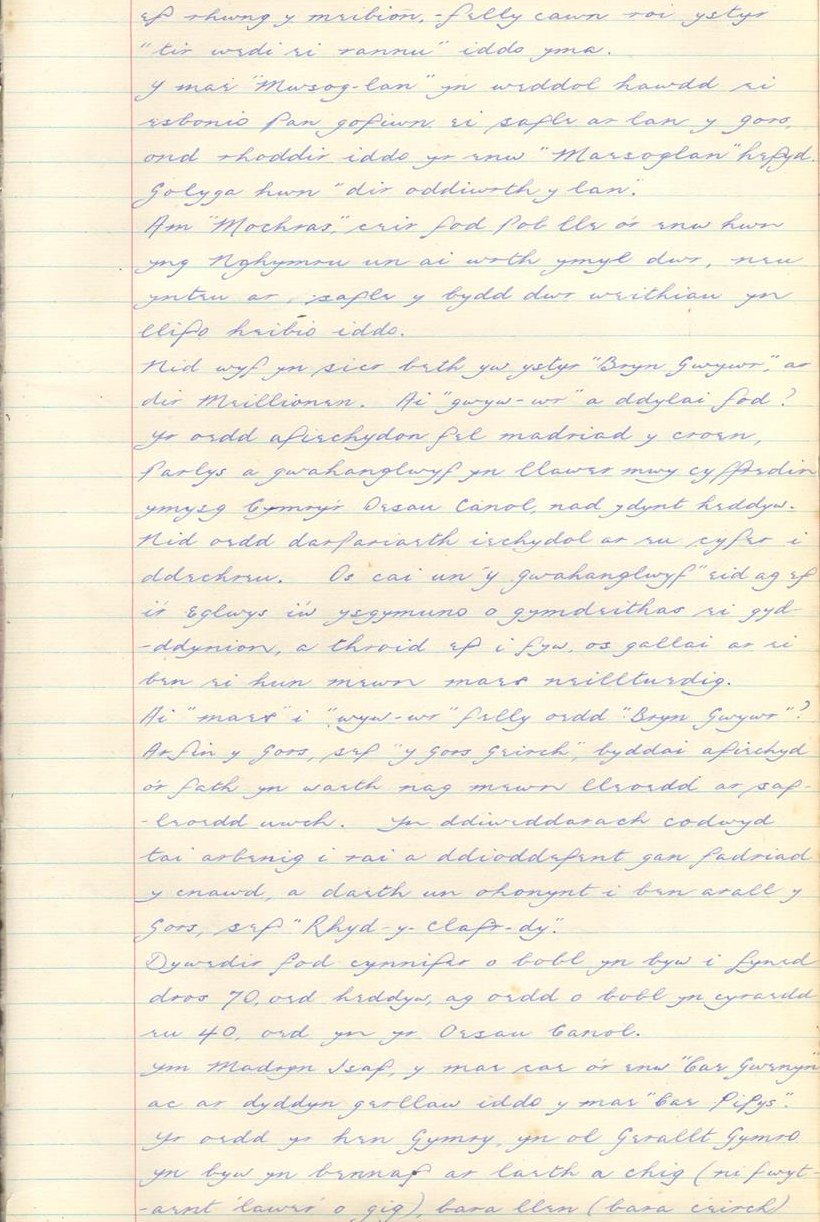 ef rhwng y meibion, -felly cawn roi ystyr
"tir wedi ei rannu" iddo yma.
Y mae "Mwsog-lan" yn weddol hawdd ei
esbonio pan gofiwn ei safle ar lan y gors,
ond rhoddir iddo yr enw "Maesoglan" hefyd.
Golyga hwn "dir oddiwrth y lan".
Am "Mochras," ceir fod pob lle o'r enw hwn
yng Nghymru un ai wrth ymyl dwr, neu
ynteu ar safle y bydd dwr weithiau yn
llifo heibio iddo.
Nid wyf yn sicr beth yw ystyr "Bryn Gwywr", ar
dir Meillionen. Ai "gwyw-wr" a ddylai fod?
Yr oedd afiechydon fel madriad y croen,
parlys a gwahanglwyf yn llawer mwy cyffredin
ymysg Cymry'r Oesau Canol, nad ydynt heddyw.
Nid oedd darpariaeth iechydol ar eu cyfer i
ddechreu. Os cai un "y gwahanglwyf" eid ag ef
i'r Eglwys i'w ysgymuno o gymdeithas ei gyd-
-ddynion, a throid ef i fyw, os gallai ar ei
ben ei hun mewn maes neillturdig.
Ai "maes" i "wyw-wr" felly oedd "Bryn Gwywr"?
Ar fin y Gors, sef "y Gors Geirch", byddai afiechyd
o'r fath yn waeth nag mewn lleoedd ar saf-
-leoedd uwch. Yn ddiweddarach codwyd
tai arbenig i rai a ddioddefent gan fadriad
y cnawd, a daeth un ohonynt i ben arall y
Gors, sef "Rhyd-y-Clafr-dy".
Dywedir fod cynnifer o bobl yn byw i fyned
dros 70, oed heddyw, ag oedd o bobl yn cyraedd
eu 40, oed yn yr Oesau Canol.
Ym Madryn Isaf, y mae cae o'r enw "Cae Gwenyn"
ac ar dyddyn gerllaw iddo y mae "Cae Pipys".
Yr oedd yr hen Gymry, yn ol Gerallt Gymro
yn byw yn bennaf ar laeth a chig (ni fwyt-
-aent 'lawer' o gig), bara llen (bara ceirch)